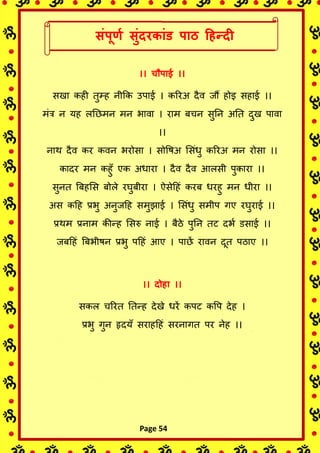 संपूर्ण सुंदरकांड पाठ हिन्दी
।। चौपाई ।।
सखा कही तुम्ह नीकि उपाई । करिअ दैव जौं होइ सहाई ।।
मंत्र न यह लछिमन मन भावा । राम बचन सुनि अति दुख पावा
।।
नाथ दैव कर कवन भरोसा । सोषिअ सिंधु करिअ मन रोसा ।।
कादर मन कहुँ एक अधारा । दैव दैव आलसी पुकारा ।।
सुनत बिहसि बोले रघुबीरा । ऐसेहिं करब धरहु मन धीरा ।।
अस कहि प्रभु अनुजहि समुझाई । सिंधु समीप गए रघुराई ।।
प्रथम प्रनाम कीन्ह सिरु नाई । बैठे पुनि तट दर्भ डसाई ।।
जबहिं बिभीषन प्रभु पहिं आए । पाछें रावन दूत पठाए ।।
।। दोहा ।।
सकल चरित तिन्ह देखे धरें कपट कपि देह ।
प्रभु गुन हृदयँ सराहहिं सरनागत पर नेह ।।
Page 54